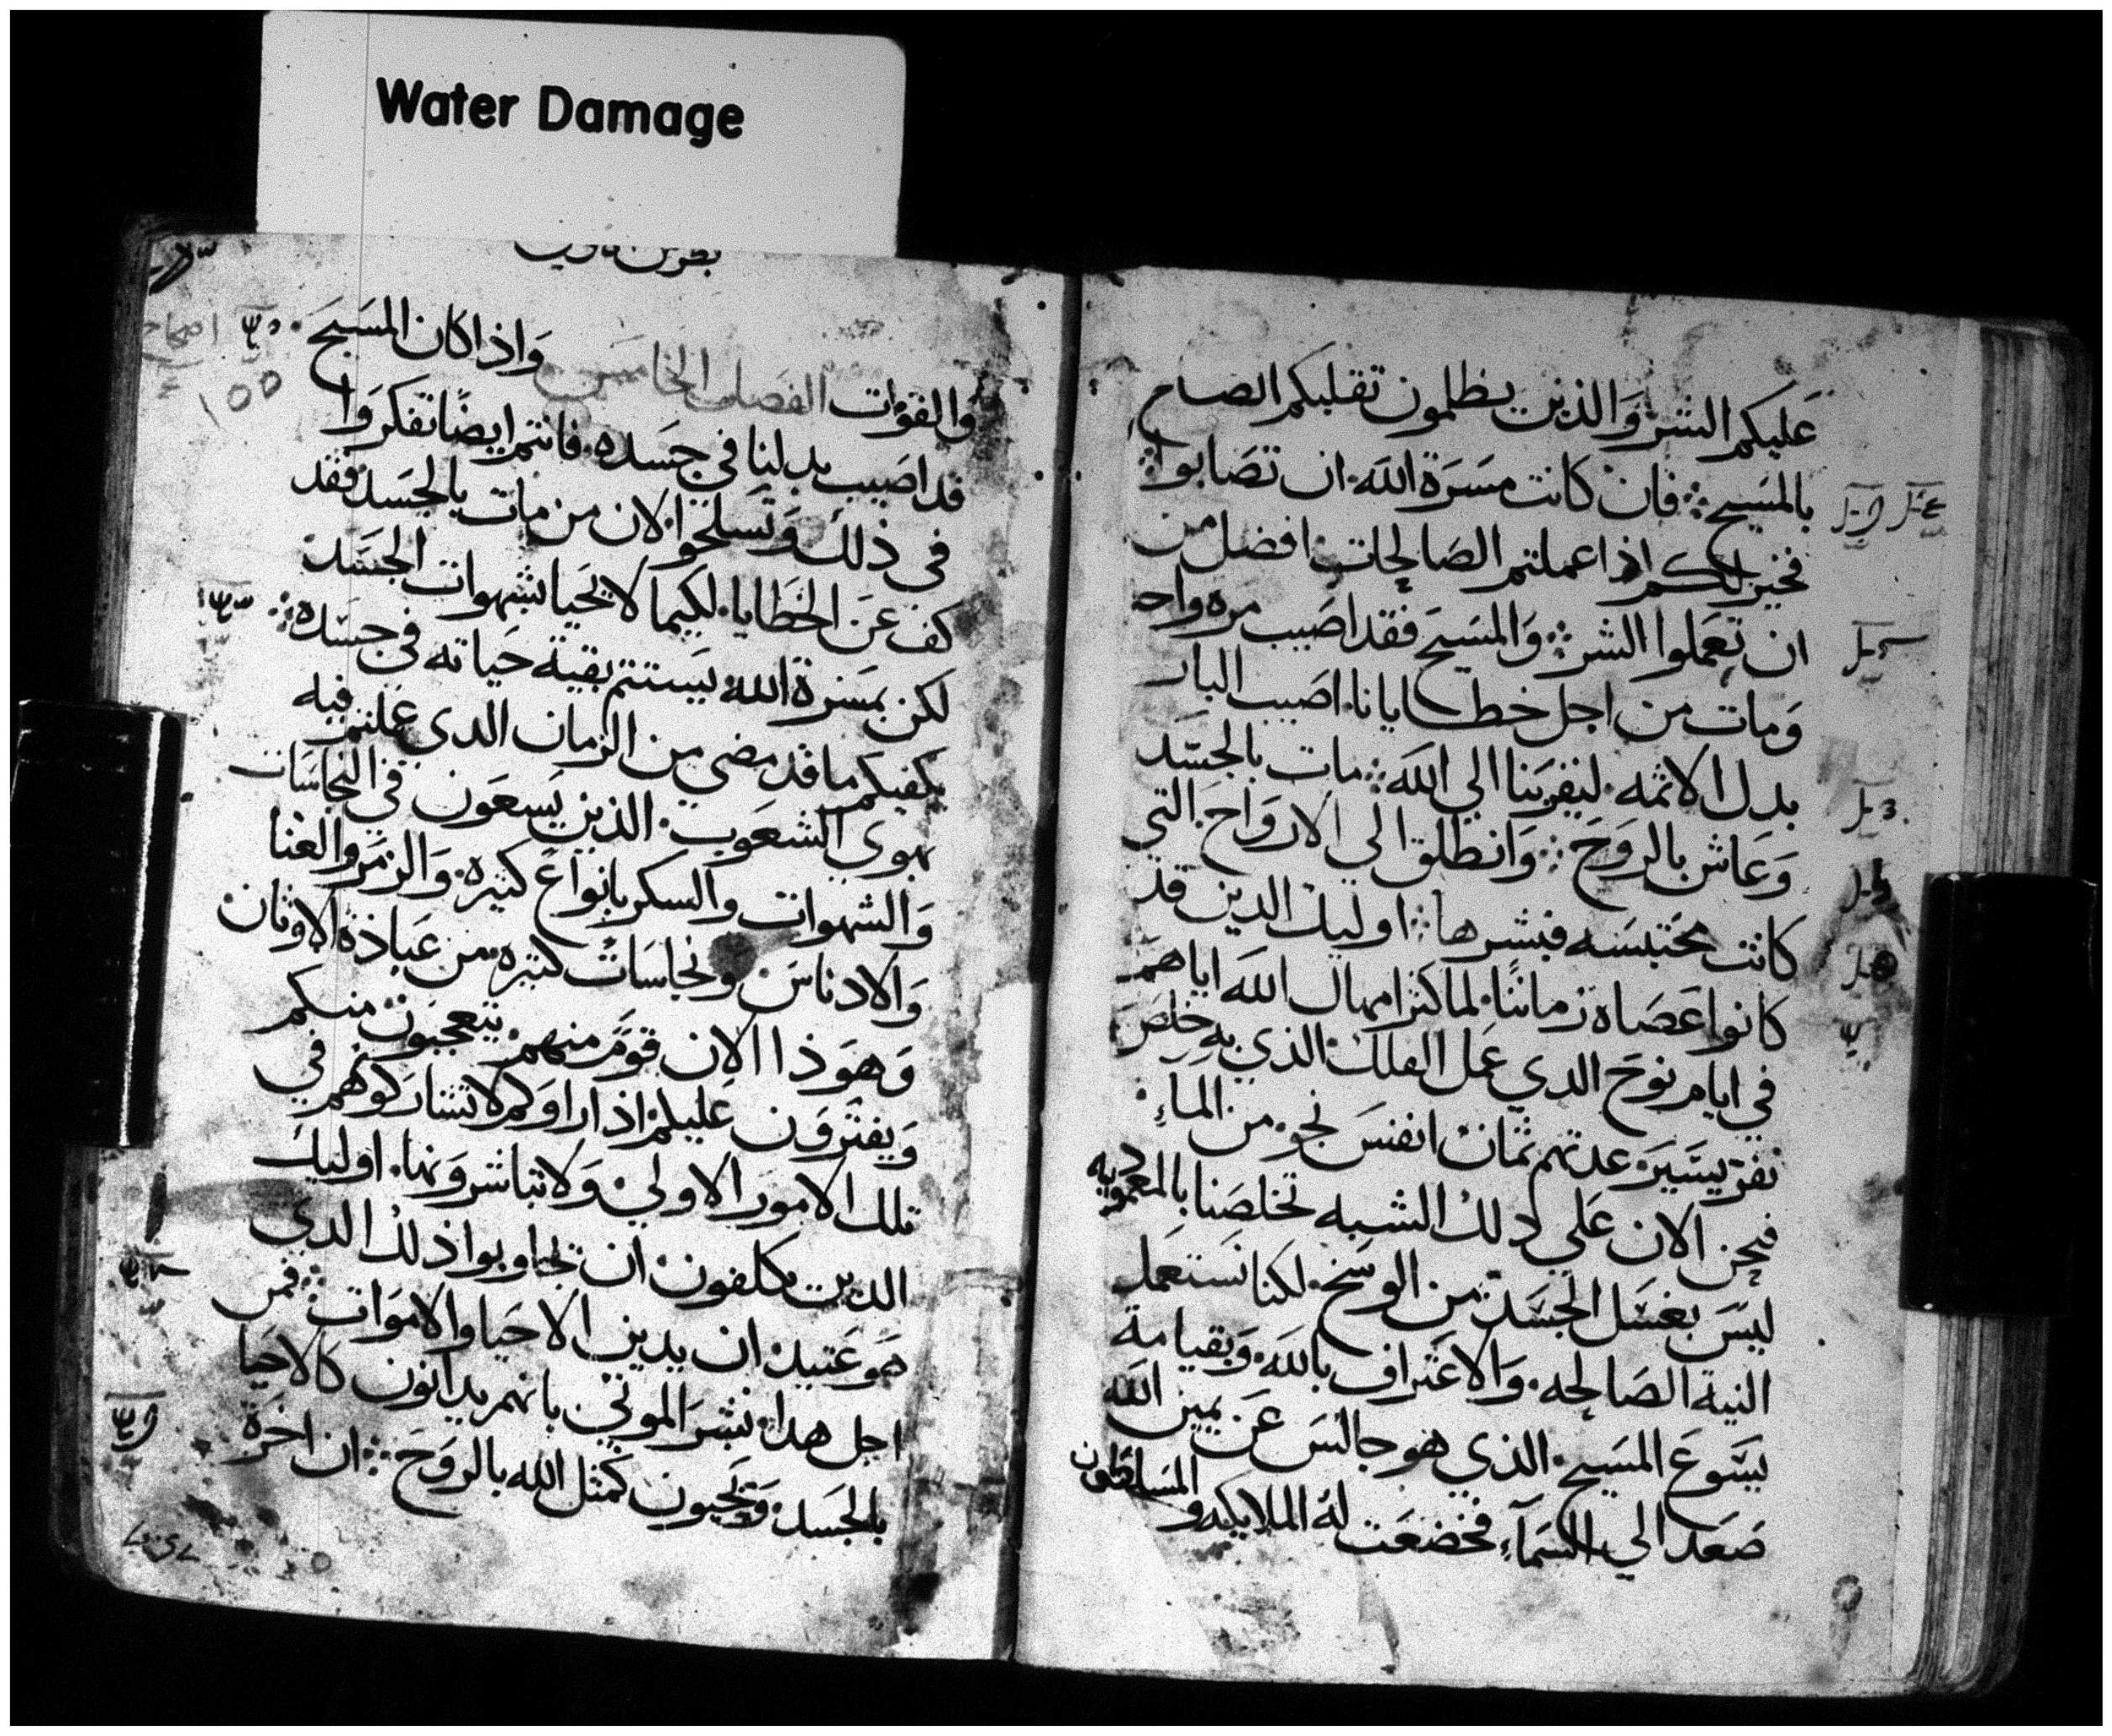 Water Damage
عليكم الشر والذين يظلمون تقلبكم الصالح
بالمسيح فان كانت مسرة الله ان تصابوا
فخير لكم اذا عملتم الصالحات افضل من
ان تعملوا الشر والمسيح فقد اصيب مره واحده
ومات من اجل خطايانا اصيب البار
بدل الاثمه ليقربنا الي الله مات بالجسد
وعاش بالروح وانطلق الي الارواح التي
كانت محتبسه فبشرها اوليك الدين قد
كانوا عصاه زمانا لما كثر امهال الله اياهم
في ايام نوح الدي عمل الفلك الذي به خلص
نفر يسير عدتهم ثمان انفس نجو من الماء
فنحن الان علي دلك الشبه تخلصنا بالمعموديه
ليس بغسل الجسد من الوسخ لكنا نستعمل
النية الصالحه والاعتراف بالله وبقيامة
يسوع المسيح الذي هو جالس عن يمين الله
صعد الي السماء فخضعت له الملايكه والمسلطون
والقوات الفصل الخامس واذا كان المسيح
قد اصيب بدلنا في جسده فانتم ايضا تفكروا
في ذلك وتسلحوا لان من مات بالجسد فقد
كف عن الخطايا لكيما لا يحيا بشهوات الجسد
لكن بمسرة الله يستتم بقية حياته في جسده
يكفيكم ما قد مضي من الزمان الدي عملتم فيه
بهوي الشعوب الذين يسعون في النجاسات
والشهوات والسكر بانواع كثيره والزمر والغنا
والادناس ونجاسات كثيره من عبادة الاوثان
وهوذا الان قوم منهم يتعجبون منكم
ويفترون عليكم اذا راوكم لا تشاركوهم في
تلك الامور الاولي ولا تباشرونها اوليك
الدين يكلفون ان تجاوبوا ذلك الدي
هو عتيد ان يدين الاحيا والاموات فمن
اجل هدا نبشر الموتي بانهم يدانون كالاحيا
بالجسد ويحيون كمثل الله بالروح ان اخرة